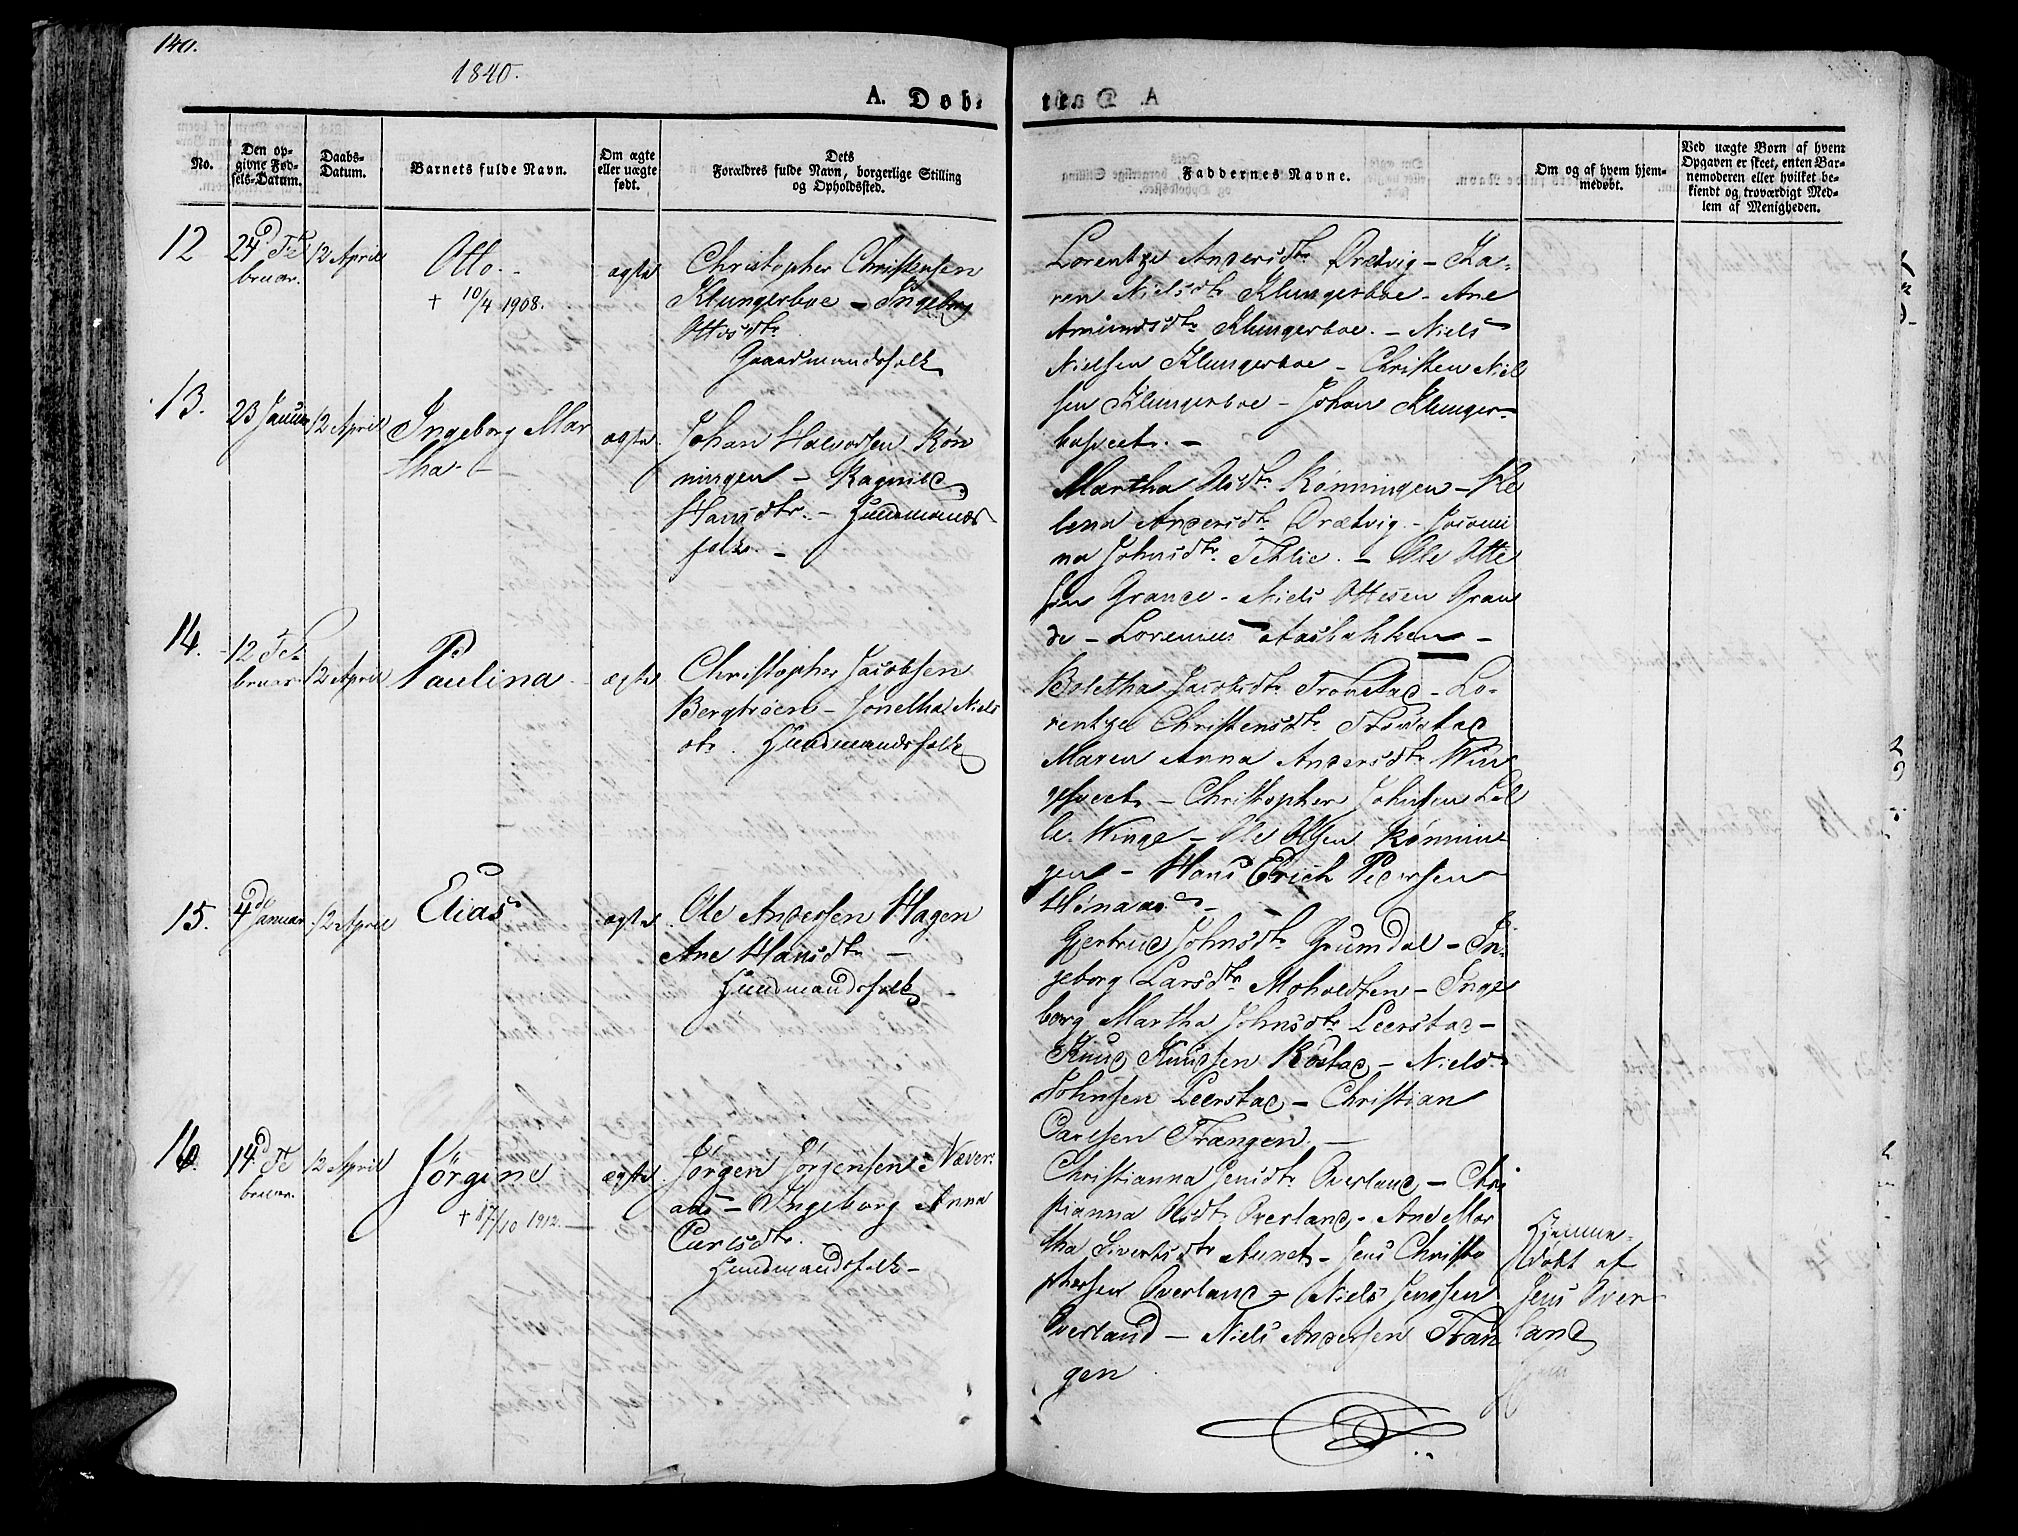 140.
1840.
A. Døbte
No.
Den opgivne Fødsels-Datum.
Daabs-Datum.
Barnets fulde Navn.
Om ægte eller uægte født.
Dets Forældres fulde Navn, borgerlige Stilling og Opholdssted.
Faddernes Navne.
Om og af hvem hjemmedøbt.
Ved uægte Børn af hvem Opgaven er skeet, enten Barnemoderen eller hvilket bekiendt og troværdigt Medlem af Menigheden.
12
24d Fe
bruar.
12 April
Otto. -
+ 10/4 1908.
ægte
Christopher Christensen
Klungerboe - Ingeborg
Ottesdtr
Gaardmandsfolk
Lorentze Andersdtr Drætvig - Ka-
ren Nielsdtr Klungerboe - Ane
Amundsdtr Klungerboe. - Niels
Nielsen Klungerboe - Christen Niel
sen Klungerboe - Johan Klunger-
boeseet. -
13.
23 Januar
12 April
Ingeborg Mar
tha. -
ægte
Johan Halvorsen Røn
ningen - Ragnild
Hansdtr. - Huusmands
folk. -
Martha Olsdtr Rønningen - Ka
lena Andersdtr Drætvig. - Jocomi
na Johnsdtr Tetlie. - Ole Otte
sen Grande - Niels Ottesen Gran
de - Lorenius Aasbakken -
14.
12 Fe-
bruar
12 April
Paulina
ægte
Christopher Jacobsen
Bergtrøen - Jonetha Niels
dtr. Huusmandsfolk
Boletha Jacobsdtr Tronstad - Lo-
rentze Christensdtr Tronstad
Maren Anna Andersdtr Win
geseet - Christopher Johnsen Lil
le Winge - Ole Olsen Rønnin-
gen - Hans Erich Pedersen
Hønaas -
15.
4de
Januar
12 April
Elias
ægte
Ole Anderssen Hagen
Ane Hansdtr -
Huusmandsfolk -
Gjertrud Johnsdtr Grumdal - In-
geborg Larsdtr Moholdten - Inge
borg Martha Johnsdtr Leerstad -
Knud Knudsen Røstad - Niels
Johnsen Leerstad - Christian
Carlsen Trangen. -
16.
14d Fe
bruar.
12 April
Jørgine
+ 17/10 1912. -
ægte
Jørgen Jørgensen Næver-
aas - Ingeborg Anna
Carlsdtr.
Huusmandsfolk -
Christianna Jensdtr Overland - Chri
stianna Olsdtr Overland - Ane Mar
tha Sivertsdtr Aunet - Jens Christo
phersen Overland - Niels Jenssen
Overland - Niels Anderssen Tran
gen
Hjemme-
døbt af
Jens Over-
land